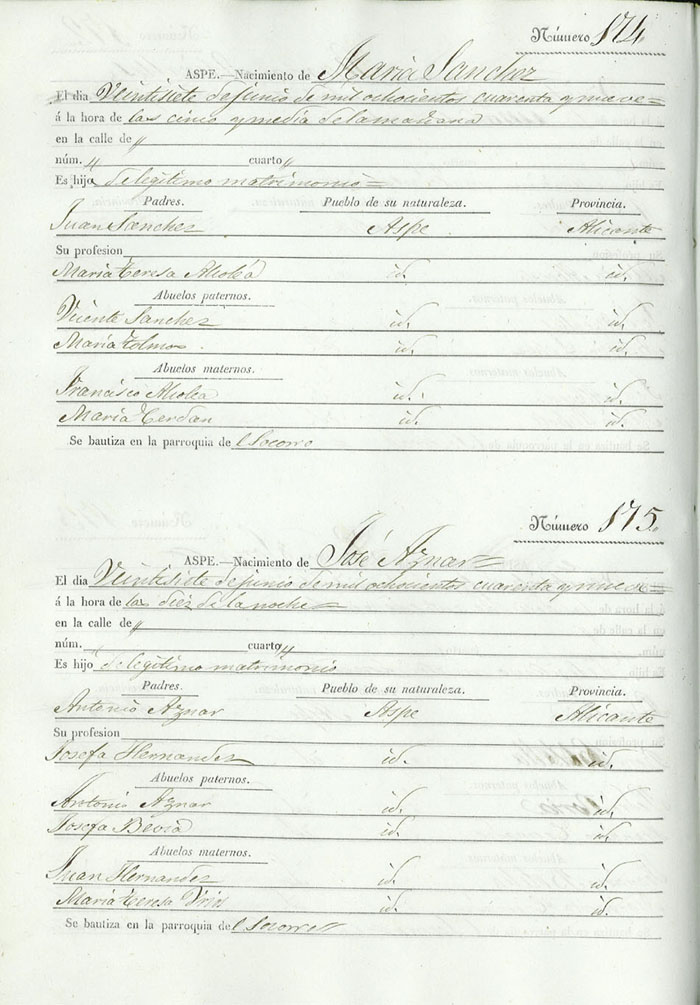 Número 174.
ASPE.—Nacimiento de Maria Sanchez
El dia Veintisiete de junio de mil ochocientos cuarenta y nueve=
á la hora de las cinco y media de la mañana
en la calle de "
núm. " cuarto "
Es hija de legitimo matrimonio=
Padres. Pueblo de su naturaleza. Provincia.
Juan Sanchez Aspe Alicante
Su profesion
Maria Teresa id. id.
Abuelos paternos.
Vicente Sanchez id. id.
Maria id. id.
Abuelos maternos.
Francisco id. id.
Maria Cerdan id. id.
Se bautiza en la parroquia del Socorro
Número 175.
ASPE.—Nacimiento de José Aznar=
El dia Veintisiete de junio de mil ochocientos cuarenta y nueve=
á la hora de las diéz de la noche=
en la calle de "
núm. " cuarto "
Es hijo de legitimo matrimonio
Padres. Pueblo de su naturaleza. Provincia.
Antonio Aznar Aspe Alicante
Su profesion
Josefa Hernandez id. id.
Abuelos paternos.
Antonio Aznar id. id.
Josefa id. id.
Abuelos maternos.
Juan Hernandez id. id.
Maria Teresa id. id.
Se bautiza en la parroquia del Socorro "